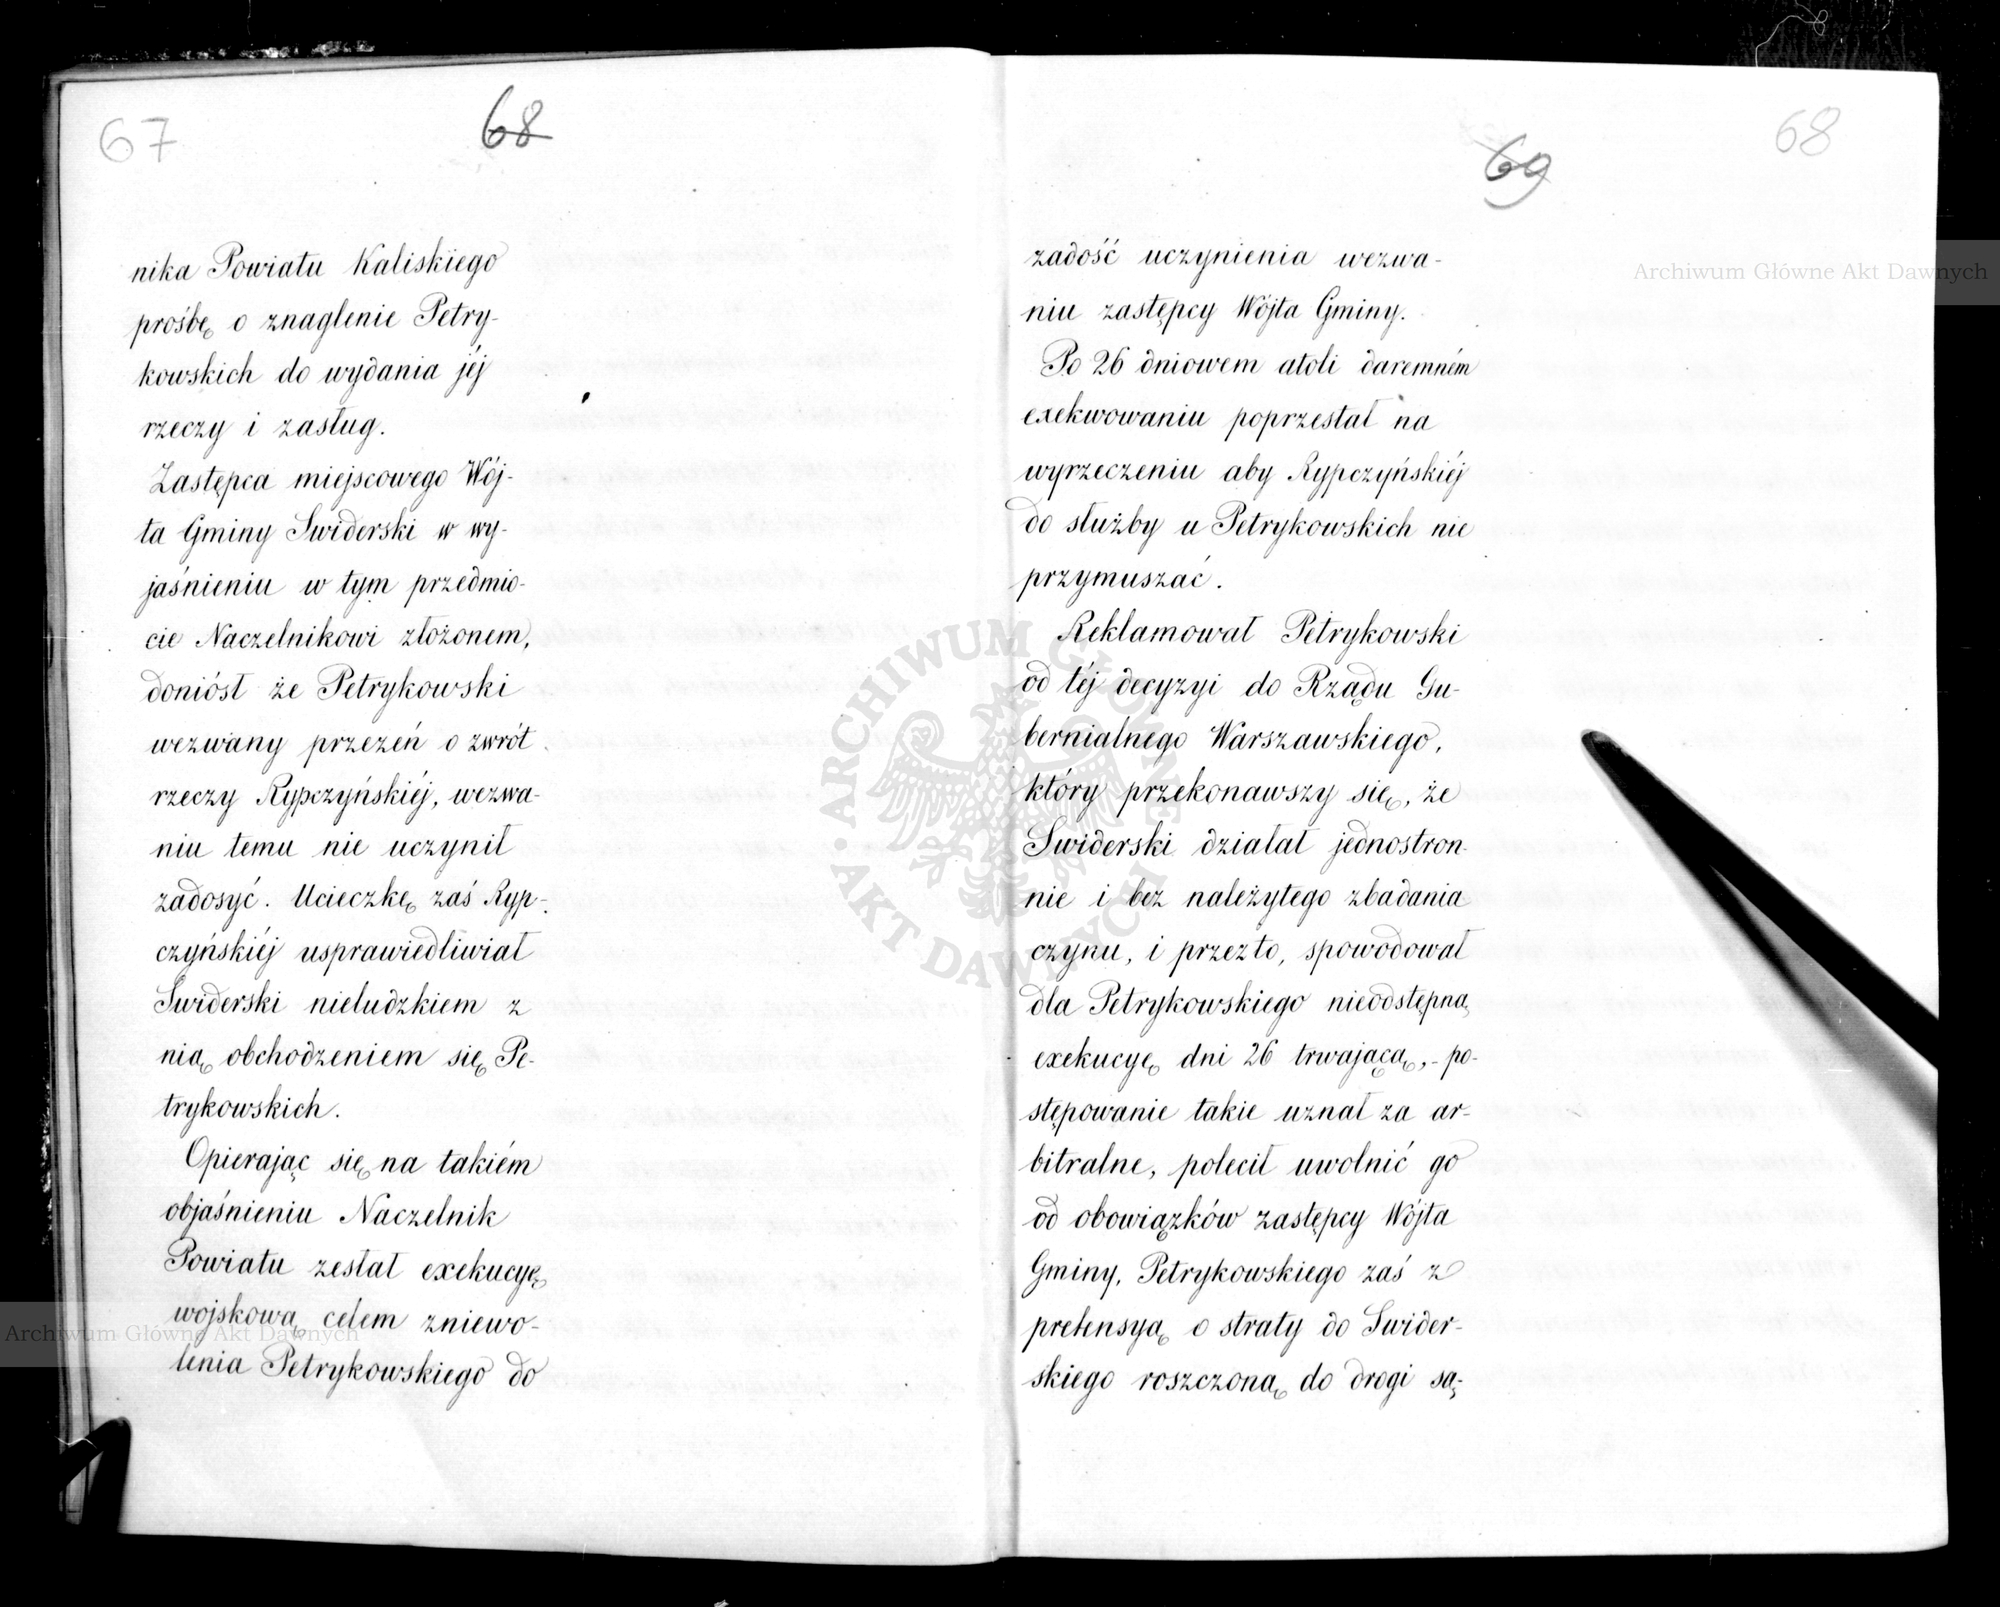 67
68
nika Powiatu Kaliskiego
prośbę o znaglenie Petry-
kowskich do wydania jéj
rzeczy i zasług.
Zastępca miejscowego Wój-
ta Gminy Swiderski w wy-
jaśnieniu w tym przedmio-
cie Naczelnikowi złożonem,
doniósł że Petrykowski
wezwany przezeń o zwrót
rzeczy Rypczyńskiéj, wezwa-
niu temu nie uczynił
zadosyć. Ucieczkę zaś Ryp-
czyńskiéj usprawiedliwiał
Swiderski nieludzkiem z
nią obchodzeniem się Pe-
trykowskich.
Opierając się na takiém
objaśnieniu Naczelnik
Powiatu zesłał exekucyę
wojskową celem zniewo-
lenia Petrykowskiego do
68
69
zadość uczynienia wezwa-
niu zastępcy Wójta Gminy.
Po 26 dniowem atoli daremném
exekwowaniu poprzestał na
wyrzeczeniu aby Rypczyńskiéj
do służby u Petrykowskich nie
przymuszać.
Reklamował Petrykowski
od téj decyzyi do Rządu Gu-
bernialnego Warszawskiego,
który przekonawszy się, że
Swiderski działał jednostron-
nie i bez należytego zbadania
czynu, i przezto, spowodował
dla Petrykowskiego nieodstępną
exekucyę dni 26 trwającą,- po-
stępowanie takie uznał za ar-
bitralne, polecił uwolnić go
od obowiązków zastępcy Wójta
Gminy, Petrykowskiego zaś z
pretensyą o straty do Swider-
skiego roszczoną do drogi są-
Archiwum Główne Akt Dawnych
Archiwum Główne Akt Dawnych
ARCHIWUM GŁÓWNE AKT DAWNYCH